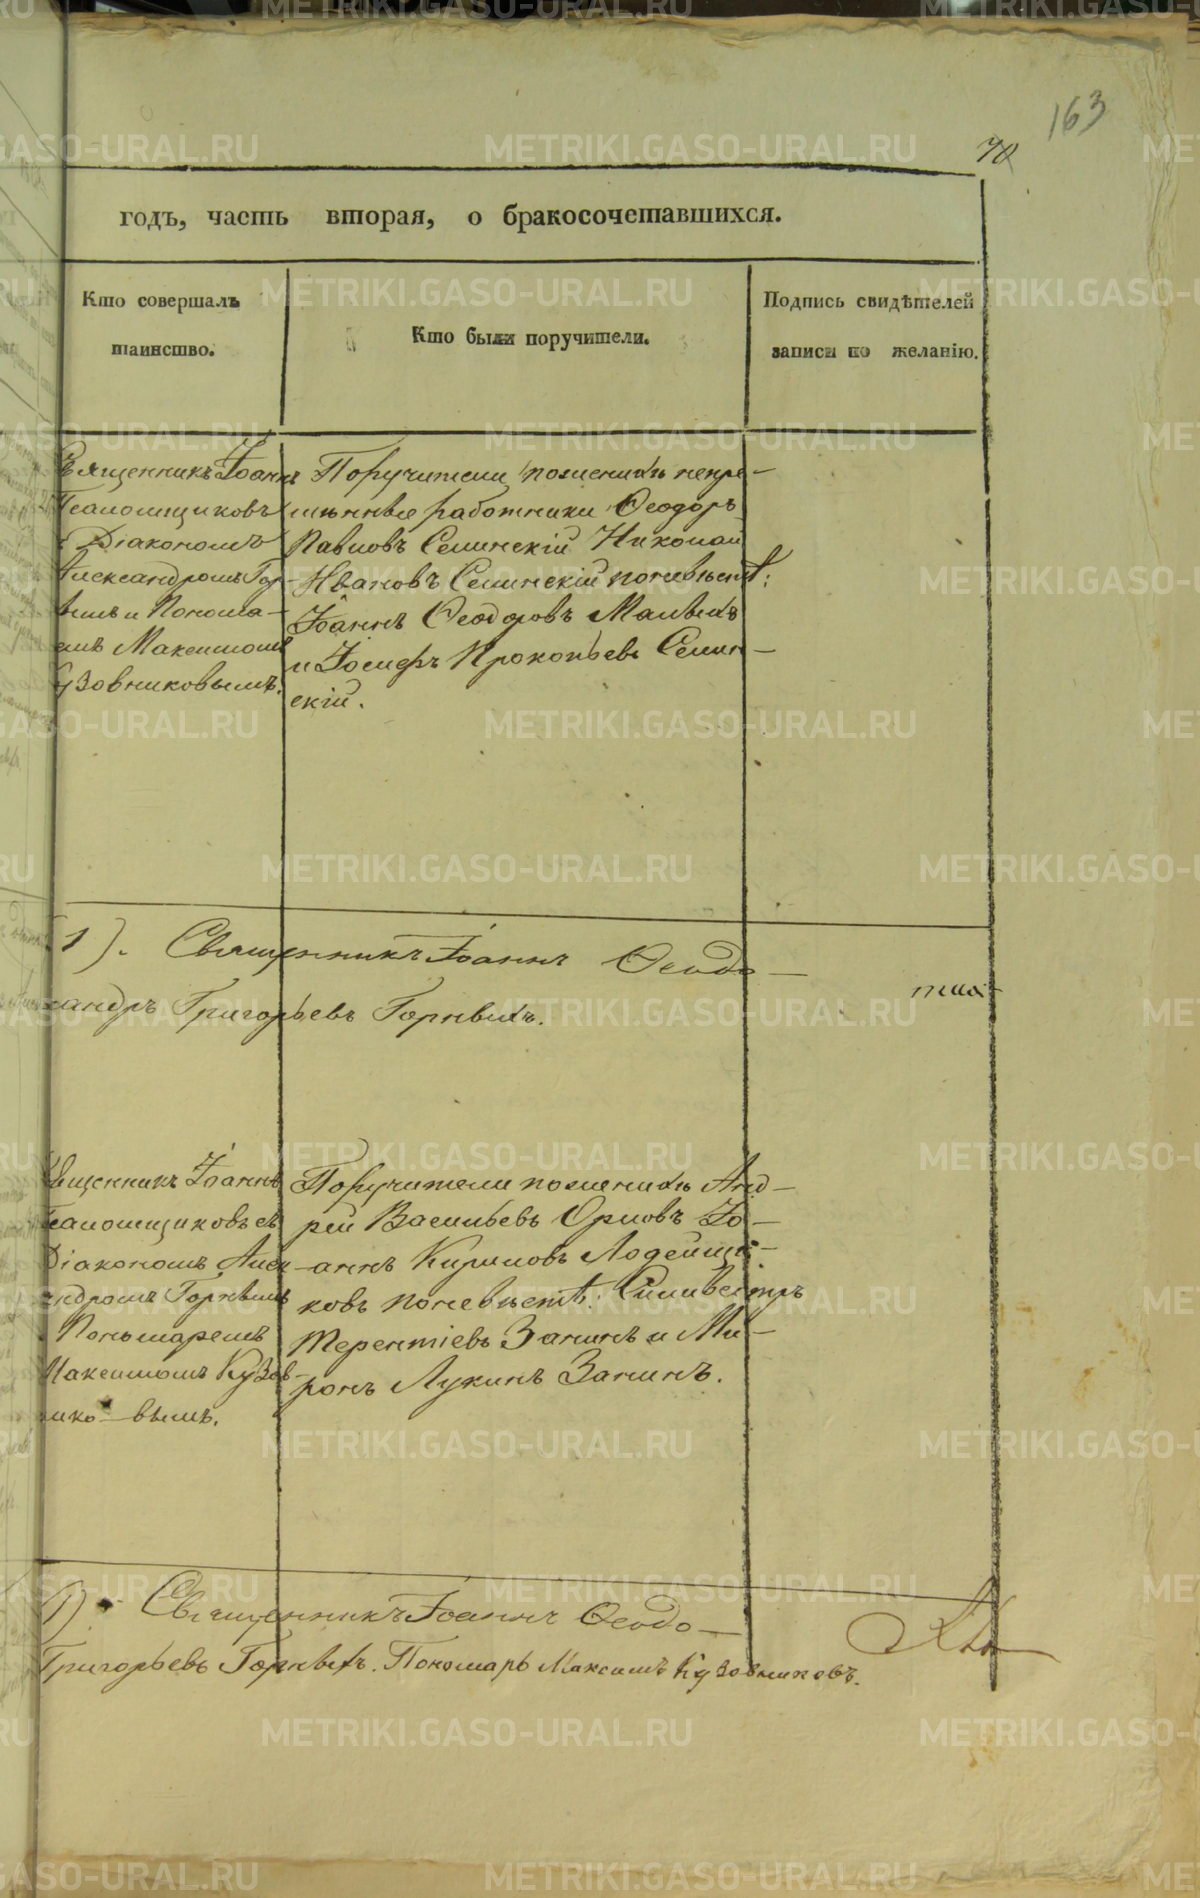 163
70
годъ, часть вторая, о бракосочетавшихся.
Кто совершалъ
таинство.
Кто были поручители.
Подпись свидѣтелей
записи по желанію.
Священникъ Іоаннъ
Псаломщиковъ
Діакономъ
Александромъ Гор-
нымъ и Понома-
емъ Максимомъ
Кузовниковымъ.
Поручители по женихѣ непре-
мѣнные работники Ѳеодоръ
Павловъ Селинскій Николай
Ивановъ Селинскій по невѣстѣ:
Іоаннъ Ѳеодоровъ Малыхъ
и Іосифъ Прокопьевъ Селин-
скій.
1). Священникъ Іоаннъ Ѳеодо-
сандръ Григорьевъ Горныхъ.
Священникъ Іоаннъ
Псаломщиковъ съ
Діакономъ Алек
андромъ Горнымъ
Пономаремъ
Максимомъ Кузов-
нико-вымъ.
Поручители по женихѣ Анд-
рей Васильевъ Орловъ Іо-
-аннъ Кириловъ Лодейщи-
ковъ по невѣстѣ: Силивестръ
Терентіевъ Занинъ и Ми-
ронъ Лукинъ Занинъ.
1). Священникъ Іоаннъ Ѳеодо-
Григорьевъ Горныхъ. Пономарь Максимъ Кузовниковъ.